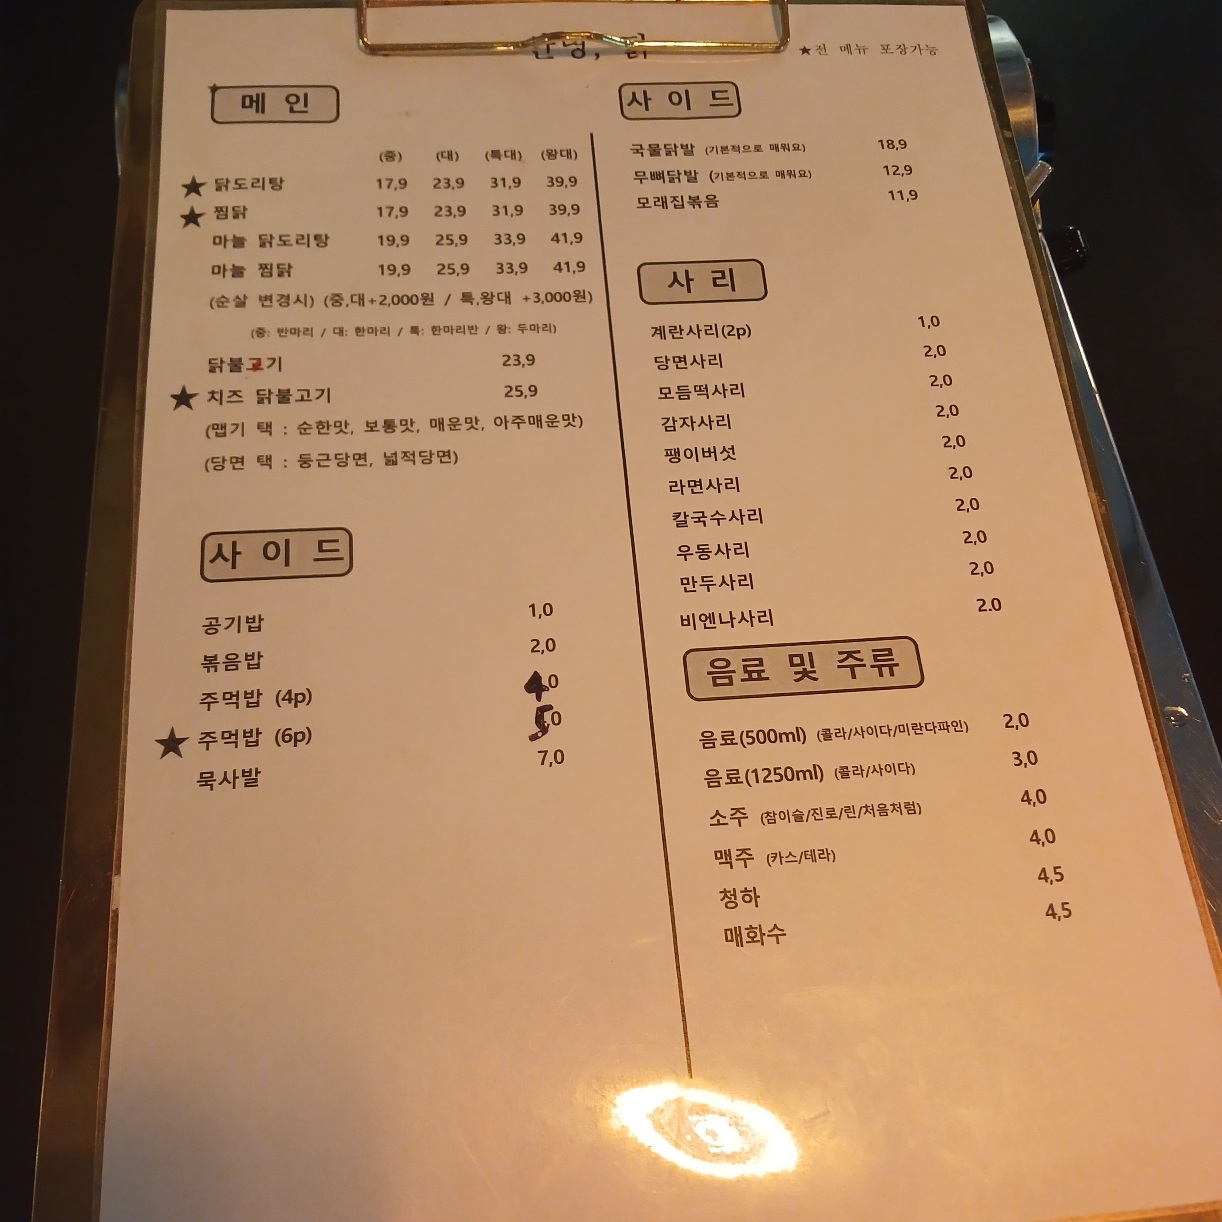 안녕, 닭
★전 메뉴 포장가능
메 인
(중) (대) (특대) (왕대)
★ 닭도리탕 17,9 23,9 31,9 39,9
★ 찜닭 17,9 23,9 31,9 39,9
마늘 닭도리탕 19,9 25,9 33,9 41,9
마늘 찜닭 19,9 25,9 33,9 41,9
(순살 변경시) (중,대+2,000원 / 특,왕대 +3,000원)
(중: 반마리 / 대: 한마리 / 특: 한마리반 / 왕: 두마리)
닭불고기 23,9
★ 치즈 닭불고기 25,9
(맵기 택 : 순한맛, 보통맛, 매운맛, 아주매운맛)
(당면 택 : 둥근당면, 넓적당면)
사 이 드
공기밥 1,0
볶음밥 2,0
주먹밥 (4p) 4,0
★ 주먹밥 (6p) 5,0
묵사발 7,0
사 이 드
국물닭발 (기본적으로 매워요) 18,9
무뼈닭발 (기본적으로 매워요) 12,9
모래집볶음 11,9
사 리
계란사리(2p) 1,0
당면사리 2,0
모듬떡사리 2,0
감자사리 2,0
팽이버섯 2,0
라면사리 2,0
칼국수사리 2,0
우동사리 2,0
만두사리 2,0
비엔나사리 2.0
음료 및 주류
음료(500ml) (콜라/사이다/미란다파인) 2,0
음료(1250ml) (콜라/사이다) 3,0
소주 (참이슬/진로/린/처음처럼) 4,0
맥주 (카스/테라) 4,0
청하 4,5
매화수 4,5